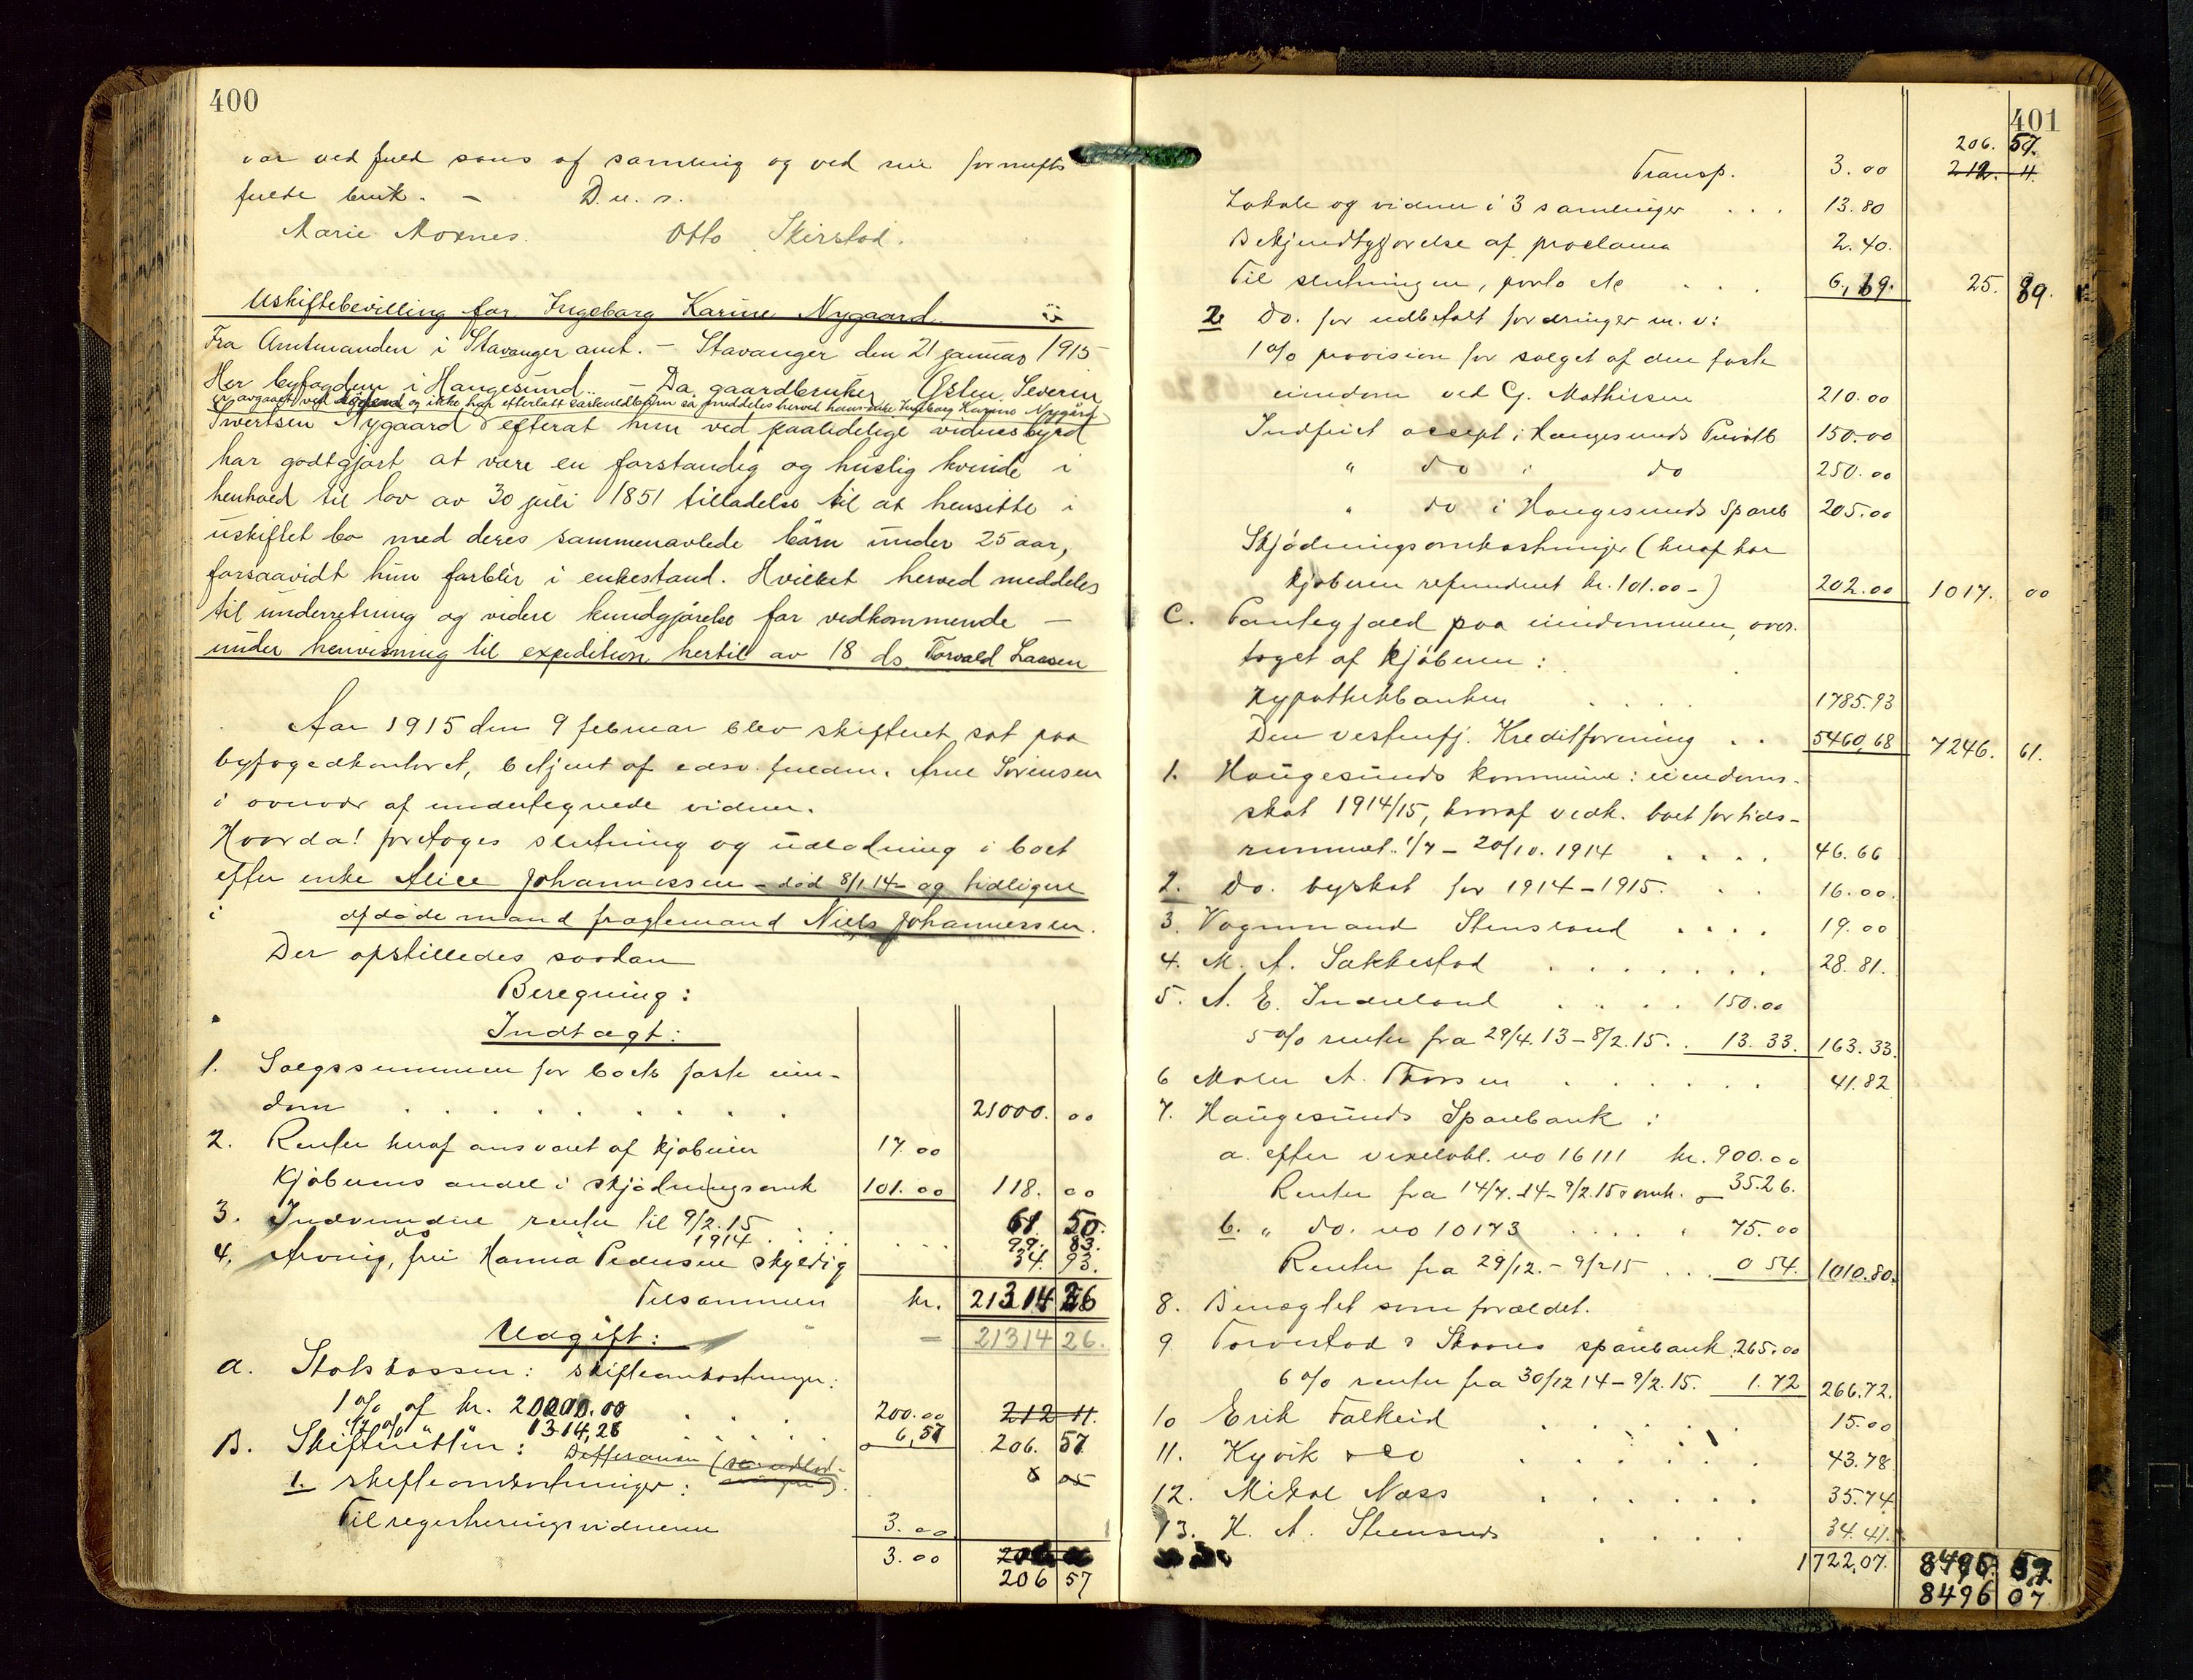 400
var ved fuld sans og samling og ved sin fornufts
fulde bruk. - D. u. s.
Marie Moxnes. Otto Skirstad.
Uskiftebevilling for Ingeborg Karine Nygaard.
Fra Amtmanden i Stavanger amt. - Stavanger den 21 januar 1915
Her byfogden i Haugesund. - Da gaardbruker Østen Severin
er avgaaet ved døden og ikke har efterlatt særkuldbørn saa meddeles herved hans enke Ingeborg Karine Nygård
Iwertsen Nygaard efterat hun ved paalidelige vidnesbyrd
har godtgjort at være en forstandig og huslig kvinde i
henhold til lov av 30 juli 1851 tilladelse til at hensitte i
uskiftet bo med deres sammenavlede børn under 25 aar,
forsaavidt hun forblir i enkestand. Hvilket herved meddeles
til underretning og videre kundgjørelse for vedkommende -
under henvisning til expedition hertil av 18 ds. Torvald Larsen
Aar 1915 den 9 februar blev skifteret sat paa
byfogedkontoret, betjent af edsv. fuldm. Arne Sørensen
i overvær af undertegnede vidner.
Hvorda! foretoges slutning og udlodning i boet
efter enke Alice Johannessen - død 8/1 14 - og tidligere
i afdøde mand fragtemand Niels Johannessen.
Der opstilledes saadan
Beregning:
Indtægt:
1. Salgssummen for boets faste eien-
dom . . . . . . . . 21000. 00
2. Renter heraf ansvaret af kjøberen 17.00
Kjøberens andel i skjødningsomk 101.00 118. 00
3. Indvundne renter til 9/2.15 . . 61 50.
do 1914 . . . 99. 83.
4. Arving, frue Hanna Pedersen skyldig 34. 93.
Tilsammen kr. 21314 26
Udgift: - 21314 26.
a. Statskassen: skifteomkostninger:
1% af kr. 20000.00 . . . 200.00 212 11.
1/2 % " " 1314,26 . . . 6,57 206. 57
B. Skifteretten: Differansen
1. skifteomkostninger:
Til registreringsvidnerne 3.00
3.00
206 57
401
206. 57.
Transp. 3.00 212. 11.
Lokale og vidner i 3 samlinger . . . 13.80
Bekjendtgjørelse af proclama 2.40.
Til slutningen, porto etc . . . 6,69. 25. 89.
2 Do. for udbetalt fordringer m. v:
1% provision for salget af den faste
eiendom ved G. Mathiesen 210.00
Indfriet accept i Haugesunds Privatb 150.00
" do i do 250.00
" do i Haugesunds Spareb 205.00
Skjødningsomkostninger (heraf har
kjøberen refunderet kr. 101.00-) 202.00 1017. 00
C. Pantegjæld paa eiendommen, over-
taget af kjøberen:
Hypothekbanken . . . . 1785.93
Den vestenfj. Kreditforening . . 5460,68 7246. 61.
1. Haugesunds kommune: eiendoms-
skat 1914/15, hvoraf vedk. boet for tids-
rummet 1/7 - 20/10. 1914 . . . . 46.66
2. Do. byskat for 1914-1915. . . 16.00.
3. Vognmand Stensland . . . . 19.00
4. M. A. Sakkestad . . . . . . . 28.81.
5. A. E. Indreland . . . . 150.00
5% renter fra 29/4.13 - 8/2.15. . 13.33. 163.33.
6 Maler A. Thorsen . . . . . . 41.82
7. Haugesunds Sparebank:
a. efter vexelobl. no 16111 kr. 900.00
Renter fra 14/7.14 - 9/2.15 & omk. - 35.26.
b. " do. no 10173 . . . . 75.00
Renter fra 29/12. - 9/2 15 . . . 0 54. 1010.80.
8. Benægtet som forældet.
9 Torvestad & Skaares sparebank 265.00
6% renter fra 30/12 14 - 9/2.15. 1.72 266.72.
10 Erik Falkeid . . . . . 15.00
11. Kyvik & Co . . . . . . 43.78
12. Mikal Næss . . . . . . 35.74
13. H. A. Steensnes . . . . 34.41.
1722,07. 8496.
8496 07